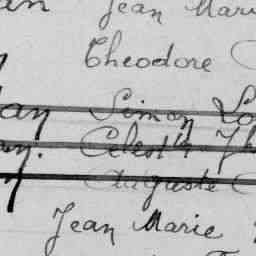 an Jean Mari
Theodore
an Simon Lo
Celestin
Auguste
Jean Marie